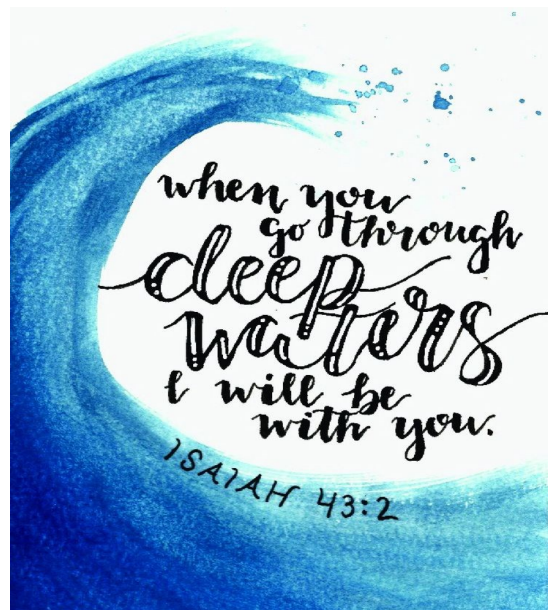 when you
go through
deep
waters
I will be
with you.
ISAIAH 43:2